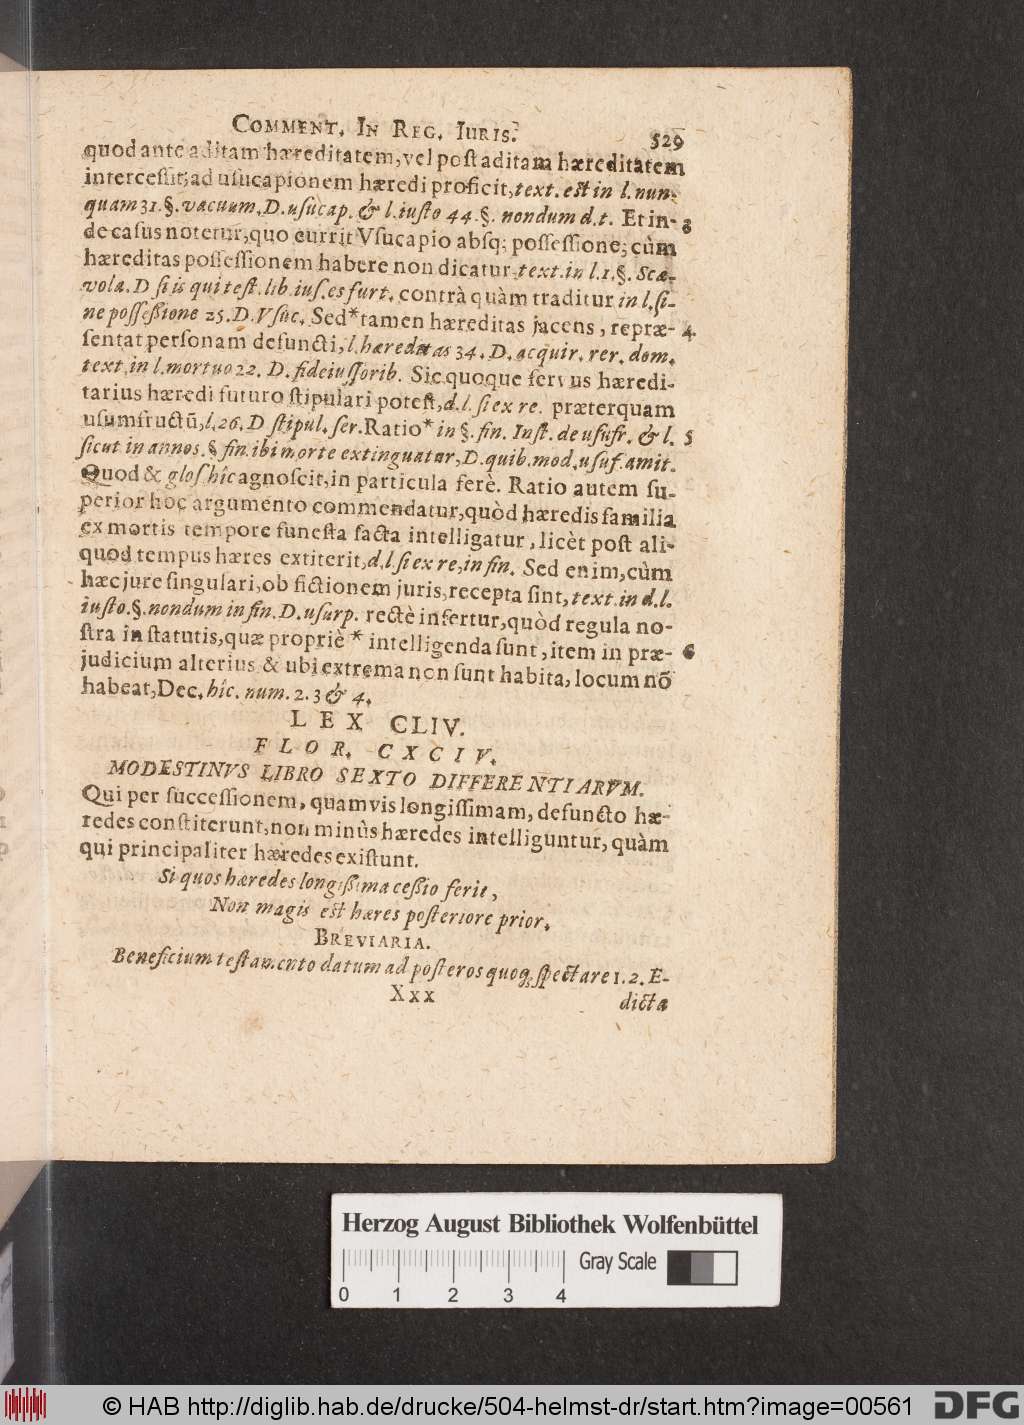 COMMENT. IN REG. IURIS. 529
quod ante aditam hæreditatem, vel post aditam hæreditatem
intercessit; ad usucapionem hæredi proficit, text. est in l. nun-
quam 31. §. vacuum. D. usucap. & l. iusto 44. §. nondum d. t. Et in- 3
de casus notetur, quo currit Vsucapio absq; possessione; cùm
hæreditas possessionem habere non dicatur text. in l. 1. §. Scæ-
vola. D si is qui test. lib. ius. es furt. contrà quàm traditur in l. si-
ne possessione 25. D. Vsuc. Sed* tamen hæreditas jacens, repræ- 4
sentat personam defuncti, l. hæreditas 34. D. acquir. rer. dom.
text. in l. mortuo 22. D. fideiussorib. Sic quoque servus hæredi-
tarius hæredi futuro stipulari potest, d. l. si ex re. præterquam
usumfructū, l. 26. D stipul. ser. Ratio* in §. fin. Inst. de usufr. & l. 5
sicut in annos. § fin. ibi morte extinguatur, D. quib. mod. usuf. amit.
Quod & glos hîc agnoscit, in particula ferè. Ratio autem su-
perior hoc argumento commendatur, quòd hæredis familia
ex mortis tempore funesta facta intelligatur, licèt post ali-
quod tempus hæres extiterit, d. l. si ex re, in fin. Sed enim, cùm
hæc jure singulari, ob fictionem juris, recepta sint, text. in d. l.
iusto. §. nondum in fin. D. usurp. rectè infertur, quòd regula no-
stra in statutis, quæ propriè * intelligenda sunt, item in præ- 6
judicium alterius & ubi extrema non sunt habita, locum nō
habeat, Dec. hîc. num. 2. 3 & 4.
LEX CLIV.
FLOR. CXCIV.
MODESTINVS LIBRO SEXTO DIFFERENTIARVM.
Qui per successionem, quamvis longissimam, defuncto hæ-
redes constiterunt, non minùs hæredes intelliguntur, quàm
qui principaliter hæredes existunt.
Si quos hæredes longissima cessio ferit,
Non magis est hæres posteriore prior.
BREVIARIA.
Beneficium testamento datum ad posteros quoq; spectare l. 2. E-
Xxx dicta
Herzog August Bibliothek Wolfenbüttel
Gray Scale
0 1 2 3 4
© HAB http://diglib.hab.de/drucke/504-helmst-dr/start.htm?image=00561 DFG